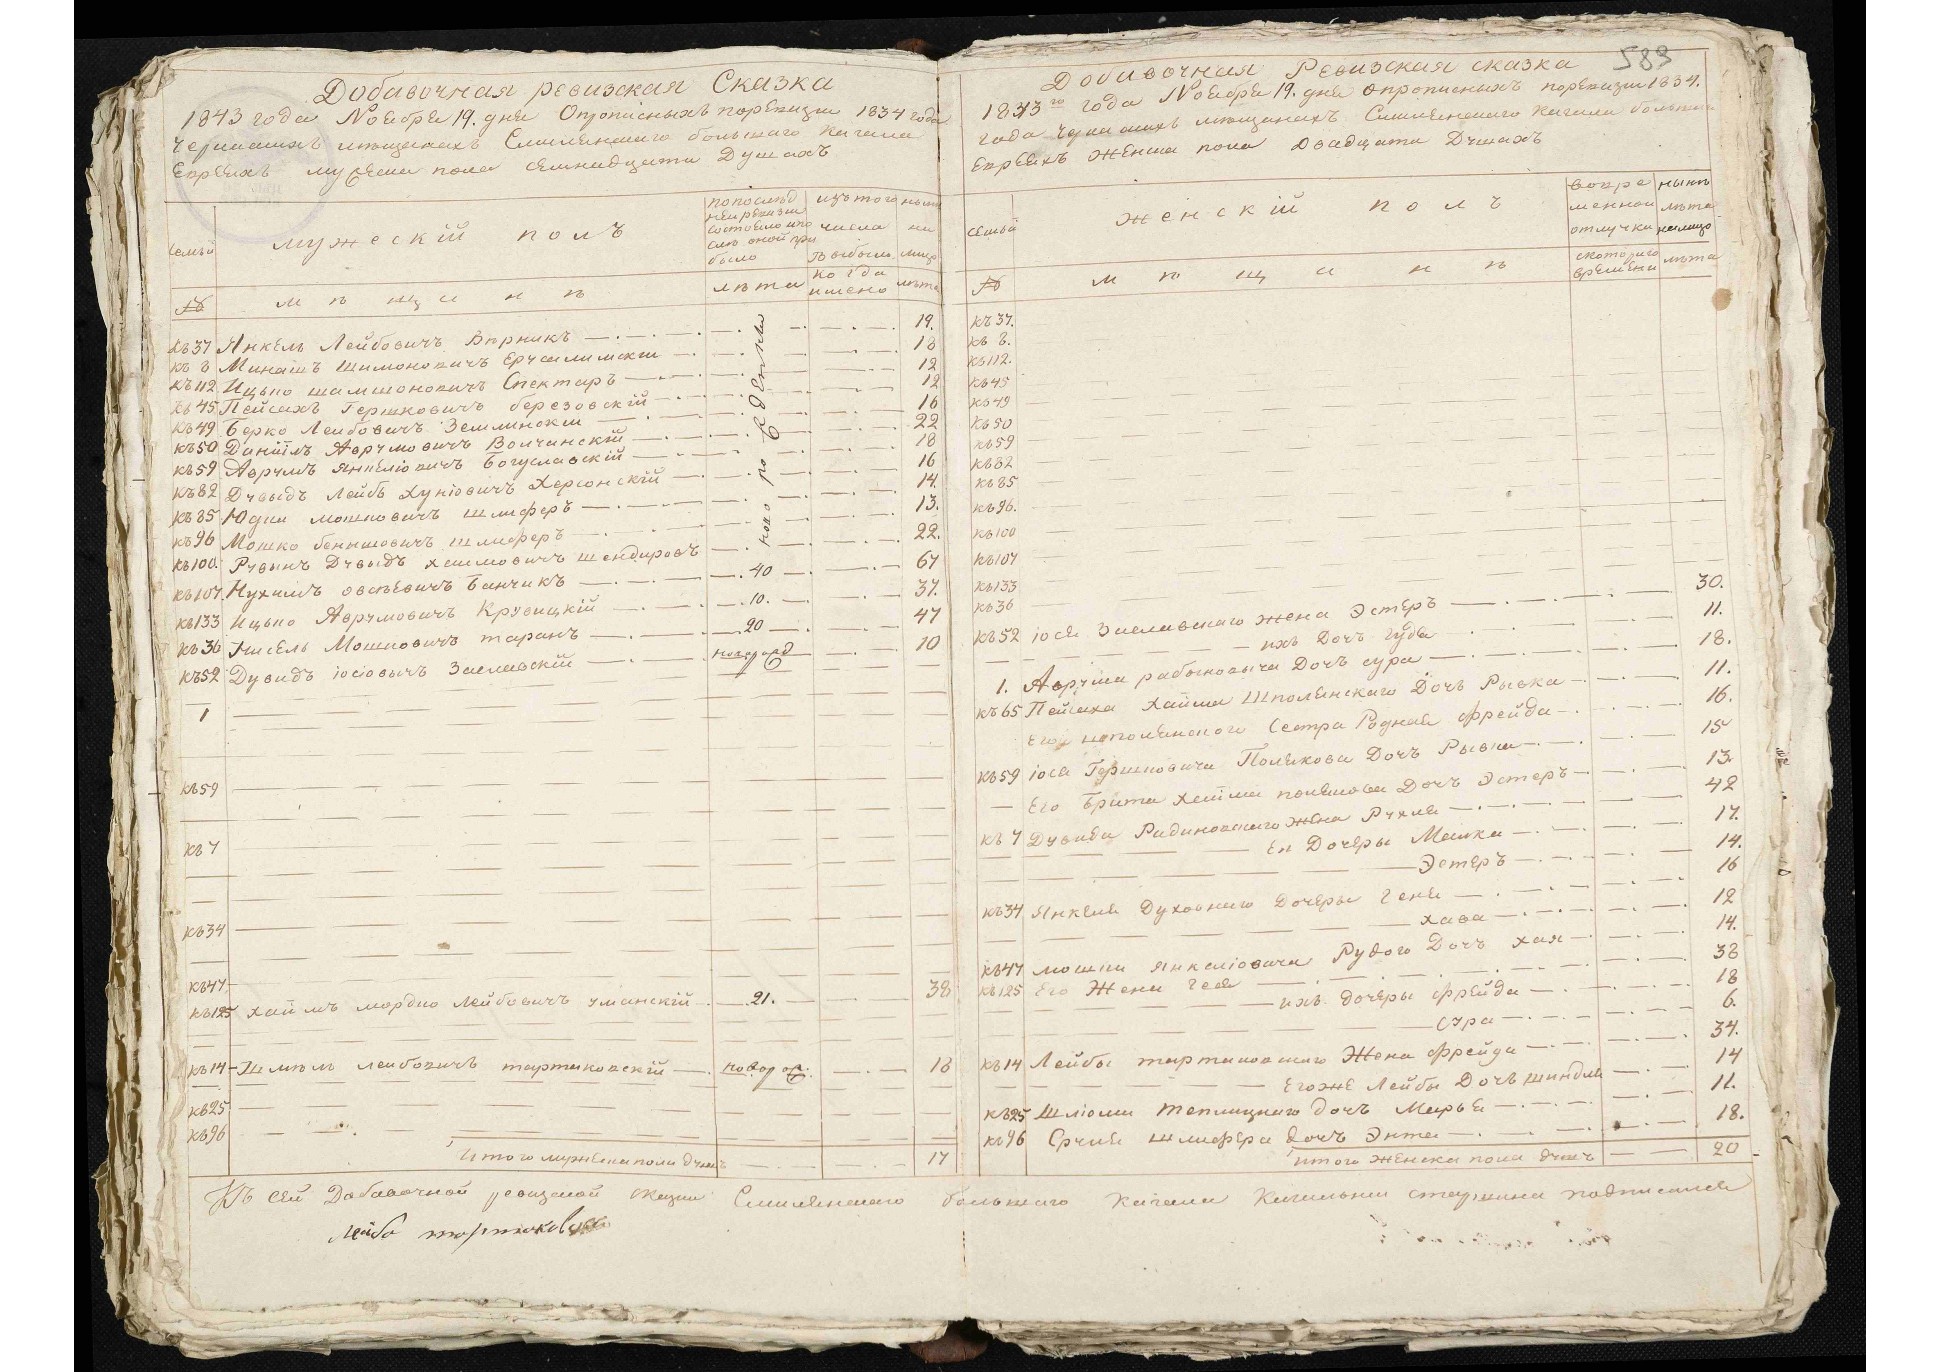 Добавочная ревизская Сказка
1843 года Ноебре 19. дне Опрописныхъ поревизи 1834 года
мещанахъ большаго Кагала
Евреехъ пола семнадцати Душахъ
семьи
мужескій полъ
попослед
ней ревизи
состоело ипо
сле оной при
было
изътого
числа
выбыло
ныне
на
лицо
№
мещане
лета
когда
имено
лета
къ 37 Янкель Лейбовичъ Вирникъ 19.
къ 8 Минашъ Шимоновичъ Ерусалимскій 18
къ 112 Ицько шамшоновичъ Спекторъ 12
къ 45 Пейсахъ Гершковичъ березовскій 12
къ 49 Берко Лейбовичъ Землинскій 16
къ 50 Даніилъ Аврумовичъ Волчинскій 22
къ 59 Аврумъ Янкеліовичъ Богуславскій 18
къ 82 Дувыдъ Лейбъ Хуніовичъ Херсонскій 16
къ 85 Юдка мошковичъ шлиферъ 14.
къ 96 Мошко бенышовичъ шлиферъ 13.
къ 100 Рувынъ Дувыдъ хаимовичъ 22.
къ 107 Нухимъ овсеевичъ Банчикъ 40 67
къ 133 Ицько Аврумовичъ Кривицкій 10. 37.
къ 36 Кисель Мошковичъ таранъ 20 47
къ 52 Дувидъ іосіовычъ Заславскій новорожд 10
1
къ 59
къ 7
къ 34
къ 47
къ 125 хаимъ мордко Лейбовичъ уманскій 21. 38
къ 14 Шмулъ лейбовичъ тартаковскій новорож. 18
къ 25
къ 96
Итого мужеска пола душъ 17
583
Добавочная Ревизская сказка
1843го года Ноебре 19. дне опрописныхъ поревизи 1834.
года мещанахъ Кагала большаго
Евреехъ Женска пола двадцати Душахъ
семьи
Женскій полъ
вовре
менной
отлучки
ныне
лета
налицо
№
мещане
скоторого
времени
лета
къ 37.
къ 8.
къ 112.
къ 45
къ 49
къ 50
къ 59
къ 82
къ 85
къ 96.
къ 100
къ 107
къ 133
къ 36
къ 52 іосе Заславскаго жена Эстеръ 30.
ихъ Дочъ 11.
1. Аврума рабиновича Дочъ сура 18.
къ 65 Пейсаха Хаима Шполенскаго Дочъ Рывка 11.
Его шполенского Сестра Родная фрейда 16.
къ 59 іосе Гершковича Полекова Дочъ Рывка 15
Его Брата Хаима полекова Дочъ Эстеръ 13.
къ 7 Дувида жена Рухле 42
ея Дочеры Малка 17.
Эстеръ 14.
къ 34 Янкеле Духовнаго Дочеры Гене 16
хава 12
къ 47 мошки янкеліовича Рудого Дочъ хая 14.
къ 125 Его Жена Гесе 38
ихъ дочеры фрейда 18
сура 6.
къ 14 Лейбы тартаковскаго Жена фрейда 34.
Егоже Лейбы Дочъ шиндля 14
къ 25 Шліоми теплицкаго дочъ Марье 11.
къ 96 Сруле шлифера дочъ Энта 18.
итого Женска пола душъ 20
Къ сей Добавочной ревизской скаски большаго Кагала Кагальни старшина подписалсе
Лейба тартаковски